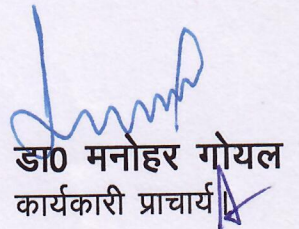 डा0 मनोहर गोयल
कार्यकारी प्राचार्य।